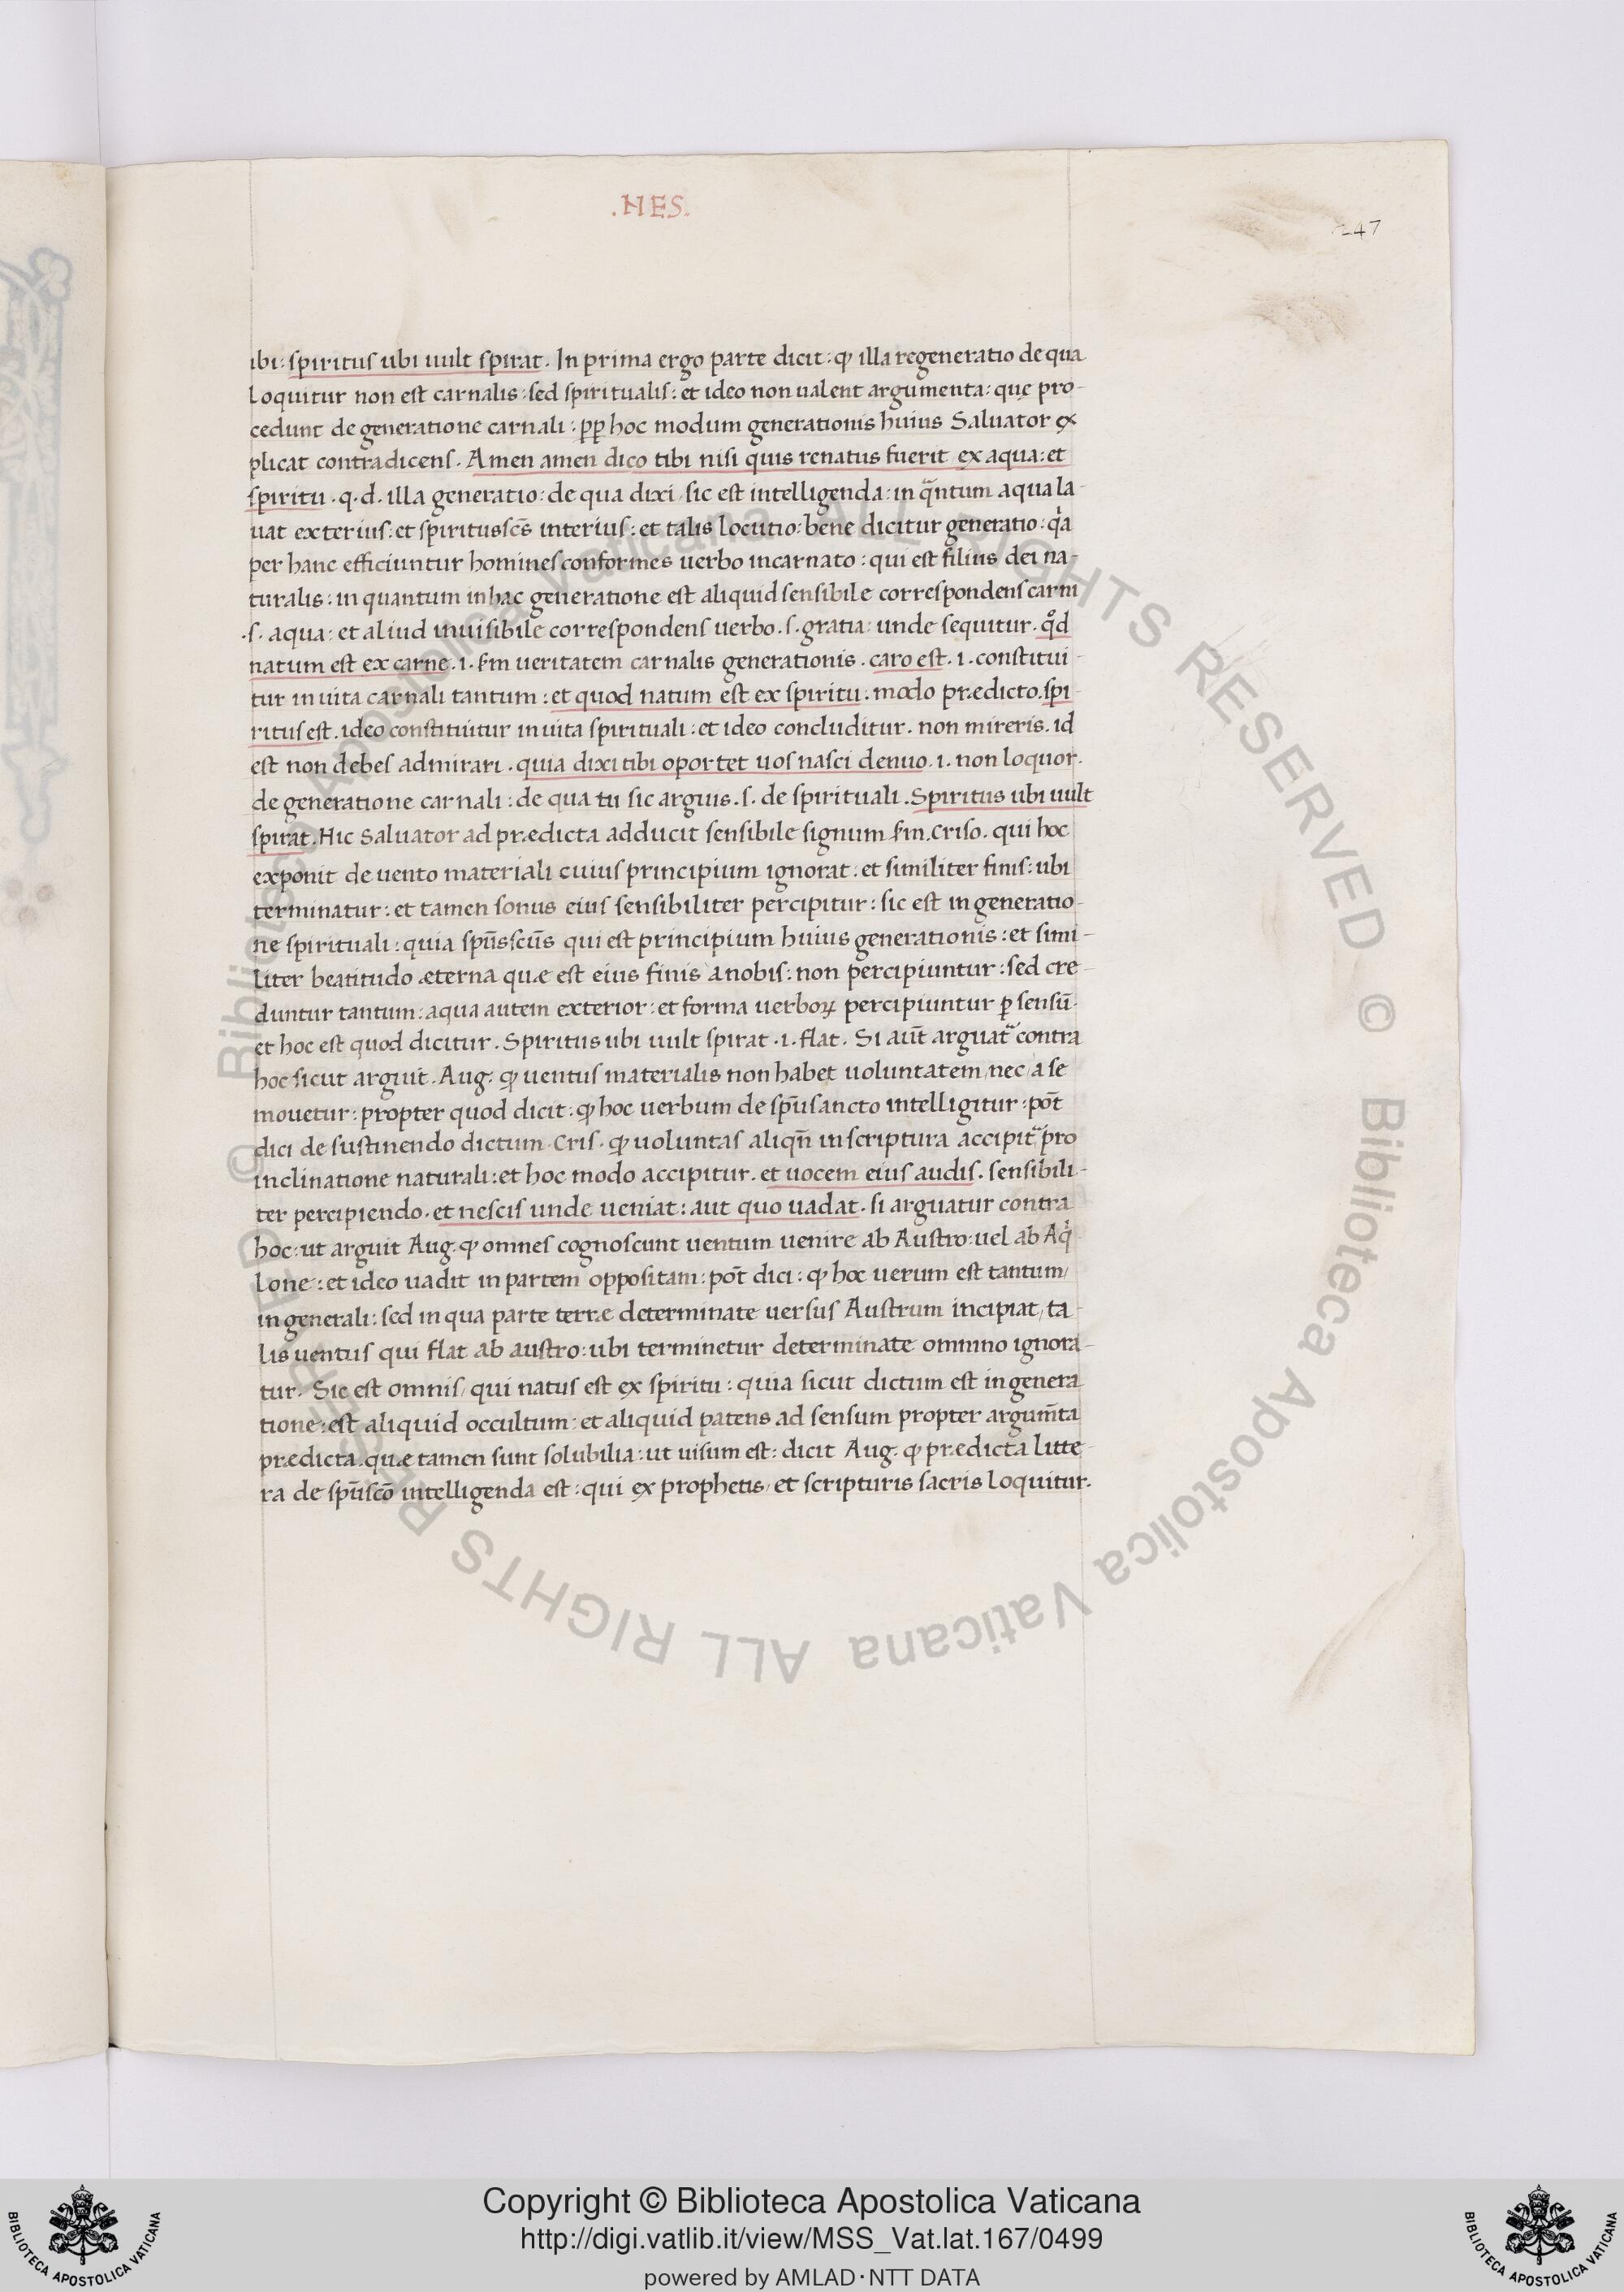 .NES.
247
ibi: spiritus ubi uult spirat. In prima ergo parte dicit: ꝙ illa regeneratio de qua
loquitur non est carnalis: sed spiritualis: et ideo non ualent argumenta: quę pro-
cedunt de generatione carnali: ꝓp hoc modum generationis huius Saluator ex
plicat contradicens. Amen amen dico tibi nisi quis renatus fuerit ex aqua: et
spiritu. q. d. illa generatio: de qua dixi, sic est intelligenda: in qᷓntum aqua la-
uat exterius: et spiritusscs̄ interius: et talis locutio: bene dicitur generatio: qͥa
per hanc efficiuntur homines conformes uerbo incarnato: qui est filius dei na-
turalis: in quantum in hac generatione est aliquid sensibile correspondens carni
.s. aqua: et aliud inuisibile correspondens uerbo. s. gratia: unde sequitur. qͦd
natum est ex carne. i. ẜm ueritatem carnalis generationis. caro est. i. constitui-
tur in uita carnali tantum: et quod natum est ex spiritu. modo prædicto. spi-
ritus est. ideo constituitur in uita spirituali: et ideo concluditur. non mireris. id
est non debes admirari. quia dixi tibi oportet uos nasci denuo. i. non loquor.
de generatione carnali: de qua tu sic arguis. s. de spirituali. Spiritus ubi uult
spirat. Hic Saluator ad prædicta adducit sensibile signum ẜm. Criso. qui hoc
exponit de uento materiali cuius principium ignorat: et similiter finis: ubi
terminatur: et tamen sonus eius sensibiliter percipitur: sic est in generatio-
ne spirituali: quia spūsscūs qui est principium huius generationis: et simi-
liter beatitudo æterna quæ est eius finis a nobis: non percipiuntur: sed cre-
duntur tantum: aqua autem exterior: et forma uerboꝝ percipiuntur ꝑ sensū.
et hoc est quod dicitur. Spiritus ubi uult spirat. i. flat. Si aut̄ arguatᷓ contra
hoc sicut arguit. Aug. ꝙ uentus materialis non habet uoluntatem, nec a se
mouetur: propter quod dicit: ꝙ hoc uerbum de spūsancto intelligitur: pōt
dici de sustinendo dictum. Cris. ꝙ uoluntas aliqn̄ in scriptura accipitᷓ pro
inclinatione naturali: et hoc modo accipitur. et uocem eius audis. sensibili-
ter percipiendo. et nescis unde ueniat: aut quo uadat. si arguatur contra
hoc: ut arguit Aug. ꝙ omnes cognoscunt uentum uenire ab Austro: uel ab Aqͥ-
lone: et ideo uadit in partem oppositam: pōt dici: ꝙ hoc uerum est tantum/
in generali: sed in qua parte terræ determinate uersus Austrum incipiat, ta-
lis uentus qui flat ab austro: ubi terminetur determinate omnino ignora-
tur. Sic est omnis, qui natus est ex spiritu: quia sicut dictum est in genera
tione: est aliquid occultum: et aliquid patens ad sensum propter argum̄ta
prædicta. quæ tamen sunt solubilia: ut uisum est: dicit Aug. ꝙ prædicta litte-
ra de spūscō intelligenda est: qui ex prophetis, et scripturis sacris loquitur.
© Biblioteca Apostolica Vaticana ALL RIGHTS RESERVED © Biblioteca Apostolica Vaticana ALL RIGHTS RESERVED
BIBLIOTECA APOSTOLICA VATICANA
Copyright © Biblioteca Apostolica Vaticana
http://digi.vatlib.it/view/MSS_Vat.lat.167/0499
powered by AMLAD·NTT DATA
BIBLIOTECA APOSTOLICA VATICANA